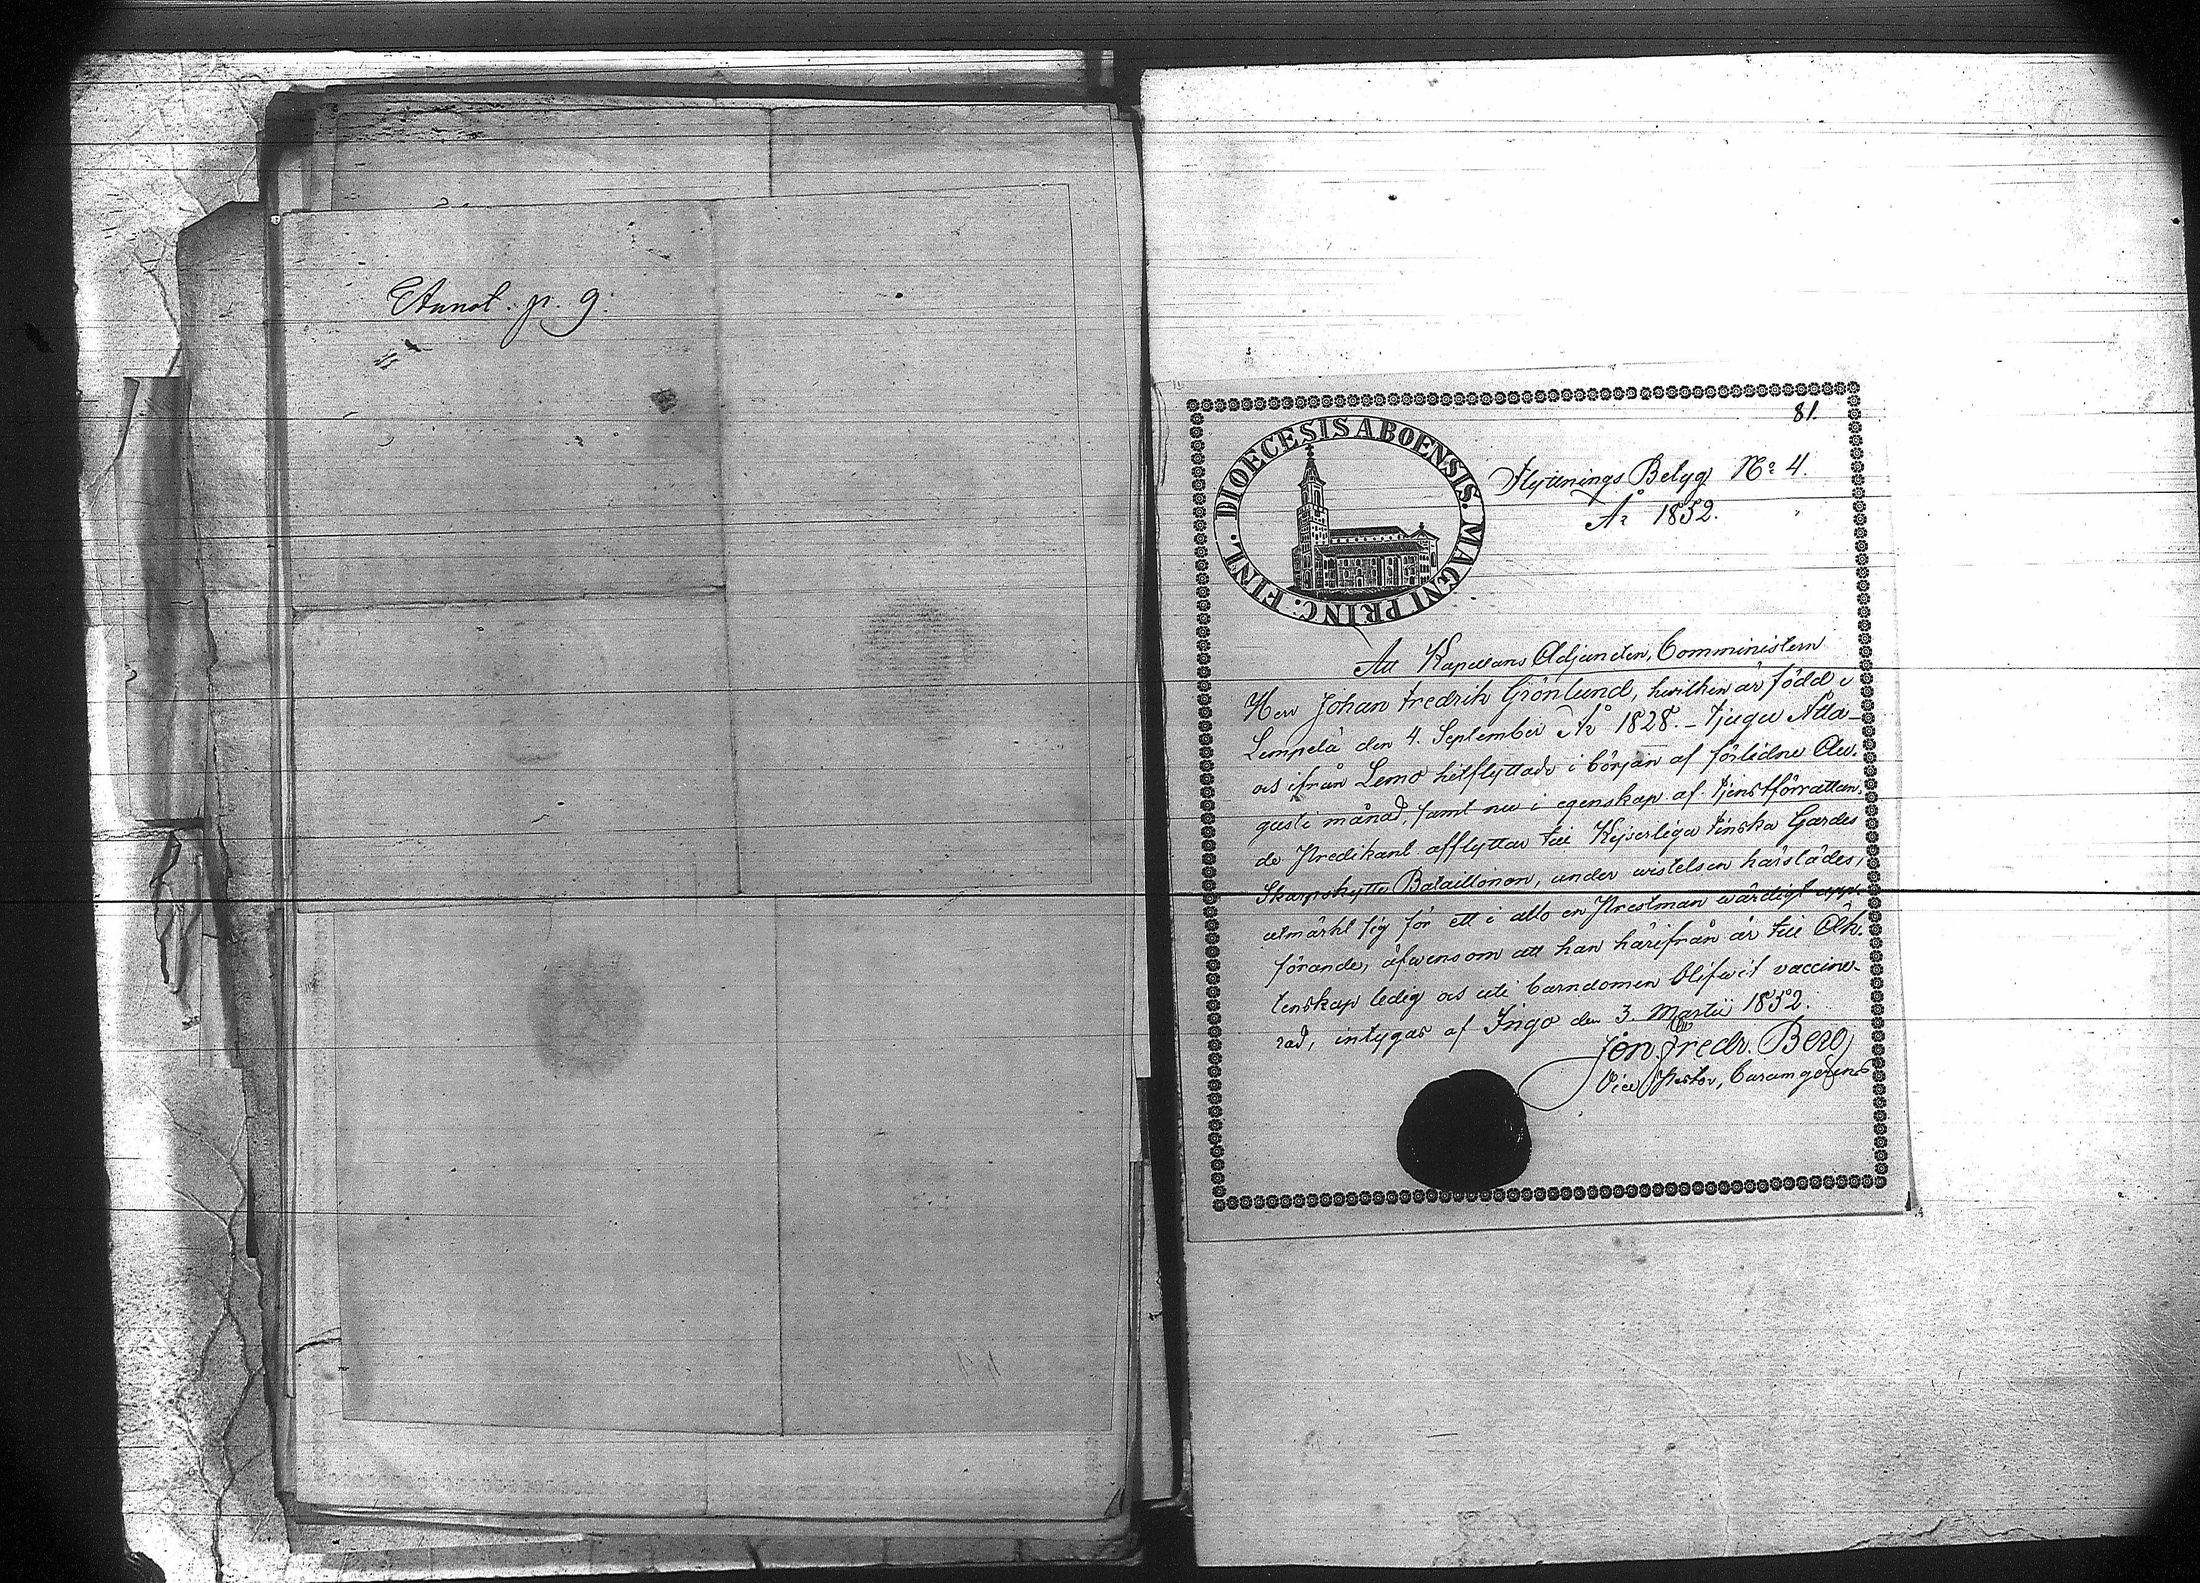 Annot. p. 9.
81.
DIOECESIS ABOENSIS. MAGNI PRINC. FINL.
Flyttnings Betyg No 4.
År 1852.
Att Kapellans Adjuncten, Comministern
Herr Johan Fredrik Grönlund, hwilken är född i
Lempelä den 4. September År 1828. – Tjugu Åtta –
ock ifrån Lemo hitflyttade i början af förlidne Au-
gusti månad, samt nu i egenskap af tjenstförrättan-
de Predikant afflyttar till Kejserliga Finska Gardes
Skarpskytte Bataillonen, under wistelsen härstädes,
utmärkt sig för ett i allo en Prestman wärdigt upp-
förande, äfwensom att han härifrån är till Äk-
tenskap ledig ock uti barndomen blifwit vaccine-
rad, intygas af Ingo den 3. Martii 1852.
Jon. Fredr. Berg,
Vice Pastor, curam gerens